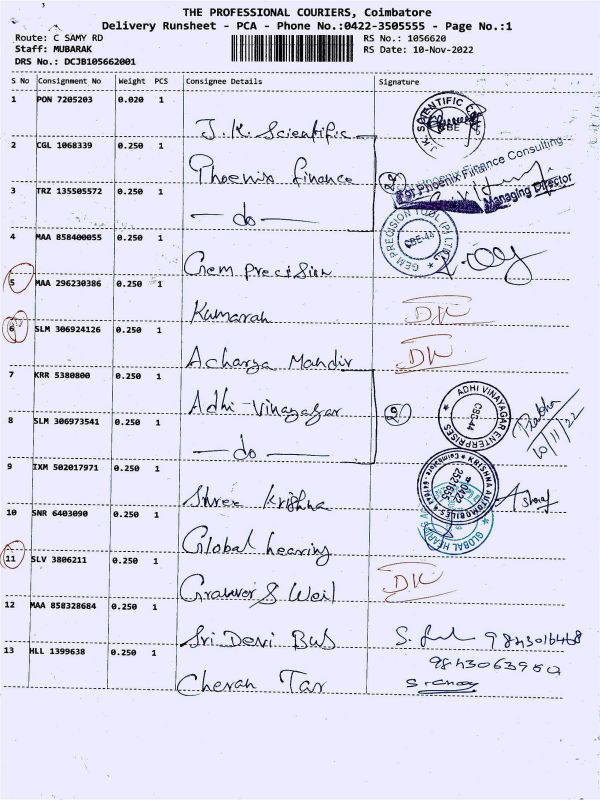 THE PROFESSIONAL COURIERS, Coimbatore
Delivery Runsheet - PCA - Phone No.:0422-3505555 - Page No.:1
Route: C SAMY RD
RS No.: 1056620
Staff: MUBARAK
RS Date: 10-Nov-2022
DRS No.: DCJB105662001
S No Consignment No Weight PCS Consignee Details Signature
1 PON 7205203 0.020 1
J.K. Scientific
J.K. SCIENTIFIC CBE
2 CGL 1068339 0.250 1
Phoenix finance
For Phoenix Finance Consulting
Managing Director
3 TRZ 135505572 0.250 1
— do —
4 MAA 858400055 0.250 1
Gem Precision
GEM PRECISION TOOL (P) LTD
CBE-44
5 MAA 296230386 0.250 1
Kumaran
DK
6 SLM 306924126 0.250 1
Acharya Mandir
DK
7 KRR 5380800 0.250 1
Adhi-Vinayagar
ADHI VINAYAGAR ENTERPRISES
CBE-44
Prabhu
10/11/22
8 SLM 306973541 0.250 1
— do —
9 IXM 502017971 0.250 1
Shree Krishna
KRISHNA AUTOMOBILES
Asharaf
10 SNR 6403090 0.250 1
Global hearing
GLOBAL HEARING
11 SLV 3806211 0.250 1
Grauer & Weil
DK
12 MAA 858328684 0.250 1
Sri Devi Bus
13 HLL 1399638 0.250 1
Cheran Tar